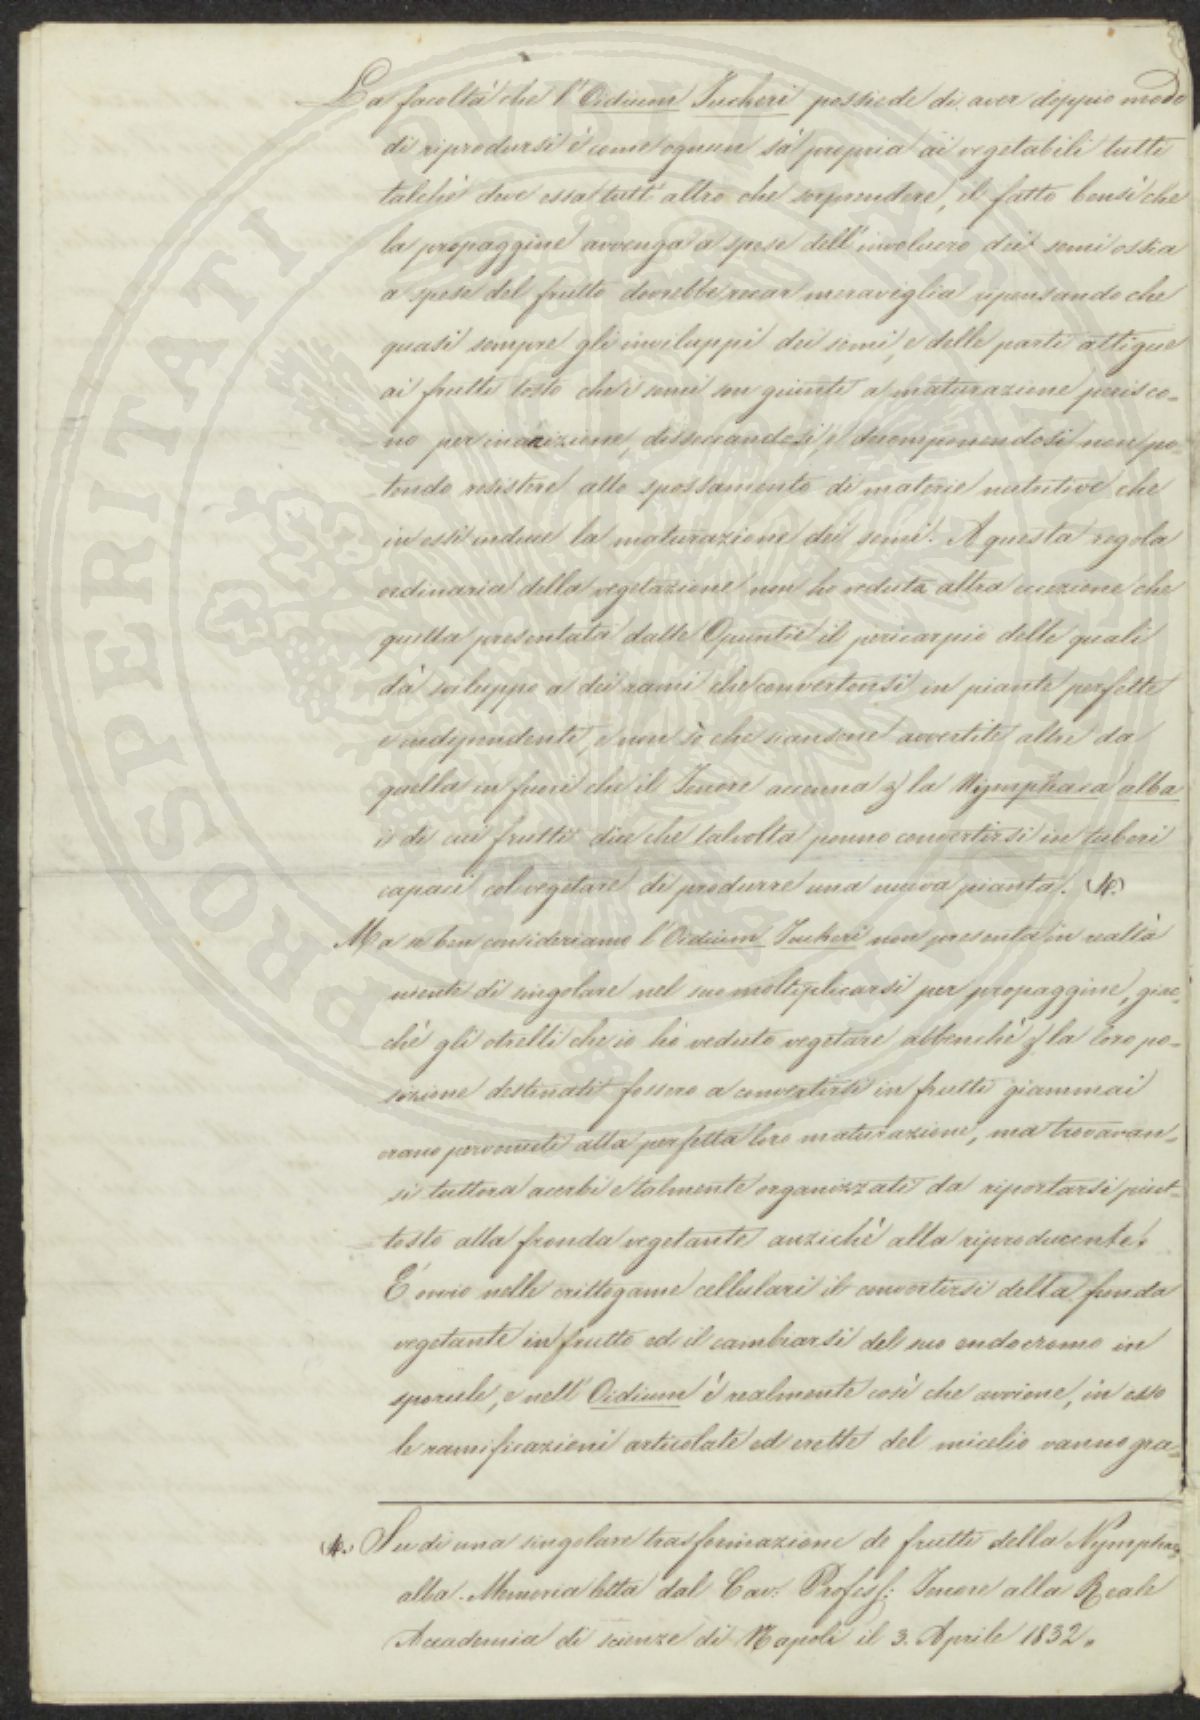 La facoltà che l'Oidium Tucheri possiede di aver doppio modo
di riprodursi è come ognun sà propria ai vegetabili tutti
talchè deve essa tutt'altro che sorprendere, il fatto bensì che
la propaggine avvenga a spese dell'involucro dei semi ossia
a spese del frutto dovrebbe recar meraviglia ripensando che
quasi sempre gli inviluppi dei semi, e delle parti attigue
ai frutti tosto che i semi son giunti a maturazione perisco-
no per inanizione, disseccandosi, e decomponendosi non po-
tendo resistere allo spossamento di materie nutritive che
in essi induce la maturazione dei semi. A questa regola
ordinaria della vegetazione non ho veduta altra eccezione che
quella presentata dalle Opuntie il pericarpio delle quali
dà sviluppo a dei rami che convertonsi in piante perfette
e independenti, e non sò che siansene avvertite altre da
quella in fuori che il Tenore accenna p la Nymphaea alba
i di cui frutti dice che talvolta ponno convertirsi in tuberi
capaci col vegetare di produrre una nuova pianta. (4.)
Ma se ben consideriamo l'Oidium Tucheri non presenta in realtà
niente di singolare nel suo moltiplicarsi per propaggine, giac-
chè gli otrelli che io hò veduto vegetare abbenchè p la loro po-
sizione destinati fossero a convertirsi in frutti giammai
erano pervenuti alla perfetta loro maturazione, ma trovavan-
si tuttora acerbi e talmente organizzati da riportarsi piut-
tosto alla fronda vegetante anzichè alla riproducente.
È ovvio nelle crittogame cellulari il convertirsi della fronda
vegetante in frutto ed il cambiarsi del suo endocromo in
sporule, e nell'Oidium è realmente così che avviene, in esso
le ramificazioni articolate ed erette del micelio vanno gra-
(4.) Su di una singolare trasformazione de frutti della Nymphaea
alba. Memoria letta dal Cav. Profess: Tenore alla Reale
Accademia di scienze di Napoli il 3. Aprile 1832.
PROSPERITATI PUBLICAE